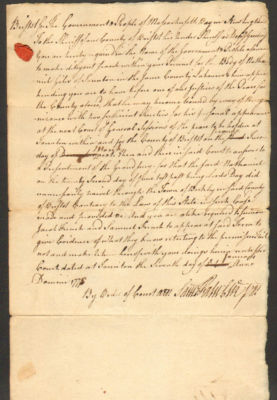 Bristol ss The Government & People of Massachusetts Bay in New England
To the Sheriff of said County of Bristol his under Sheriff or Deputy Greeting
You are hereby required in the Name of the Government & People aforesaid
to make diligent search within your Precinct for the Body of Nathan
of Taunton in the same County & having him appre
hended you are to have before one of the Justices of the Peace for
the County aforesaid that he may become bound by way of Recogni
zance with two sufficient Sureties for his personal appearance
at the next Court of General Sessions of the Peace to be holden at
Taunton within and for the County of Bristol on the second Tues
day of March next Then and there in said Court to answer to
a Presentment of the Grand Jury for that the said Nathaniel
on the twenty second Day of last past being Lords Day did
unnecessarily travel through the Town of Berkley in said County
of Bristol Contrary to the Law of this State in such Case
made and provided And you are also required to summon
Jacob French and Samuel French to appear at said Term to
give Evidence of what they know relating to the premises Fail
not and make return hereof with your doings herein unto said
Court dated at Taunton the Seventh day of January Anno
Domini 1778
By Order of Court